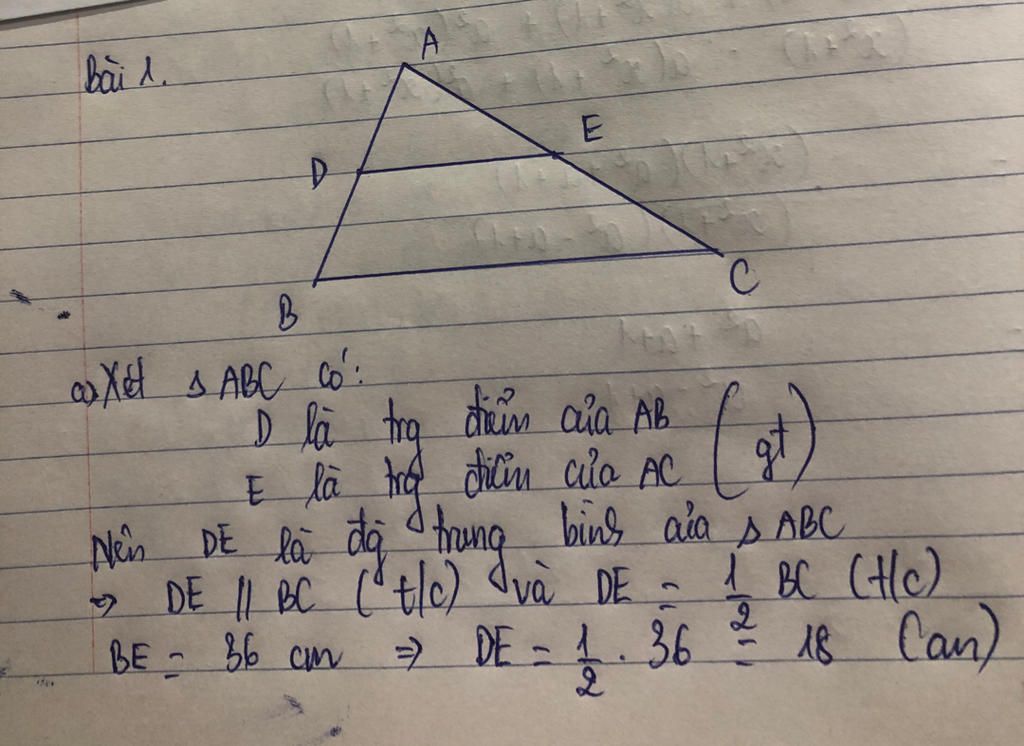 Bài 1.
A
D
E
B
C
a) Xét Δ ABC có:
D là trg điểm của AB
E là trg điểm của AC (gt)
Nên DE là đg trung bình của Δ ABC
=> DE // BC (t/c) và DE = 1/2 BC (t/c)
BE = 36 cm => DE = 1/2 . 36 = 18 (cm)